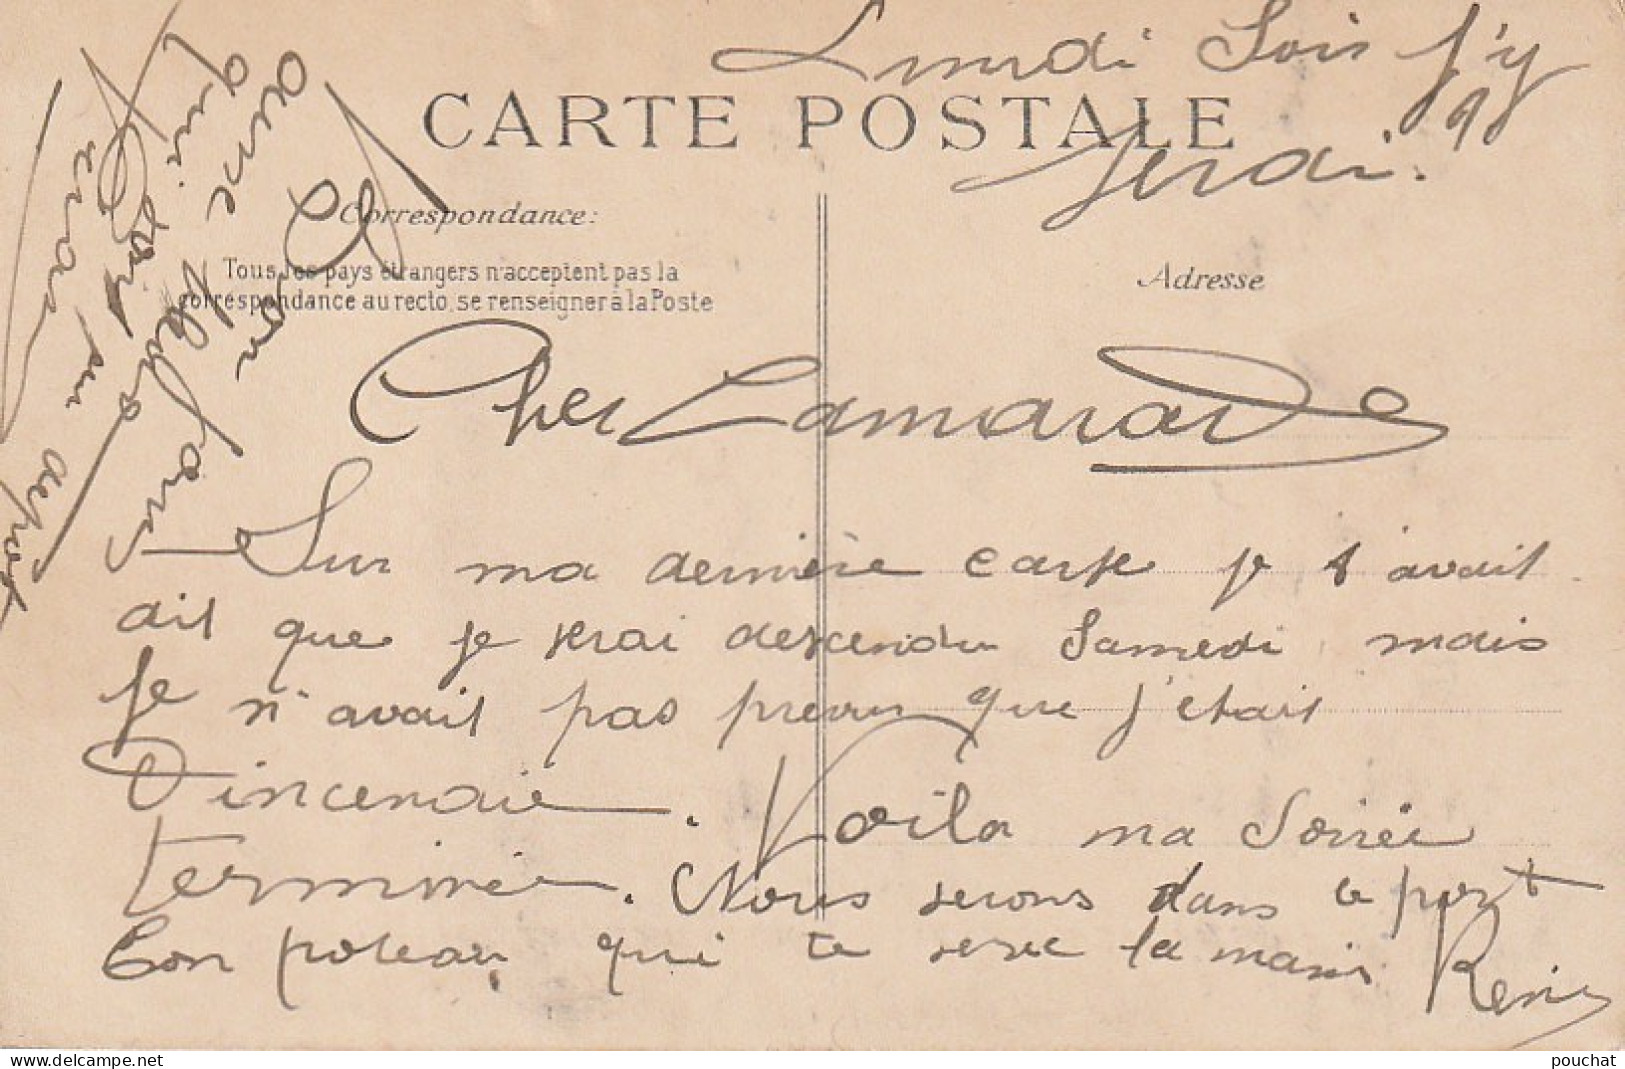 Lundi Soir j'y
CARTE POSTALE
serai.
Correspondance:
Tous les pays étrangers n'acceptent pas la
correspondance au recto, se renseigner à la Poste
Adresse
Cher Camarade
Sur ma dernière carte je t'avait
dit que je serai descendu Samedi, mais
je n'avait pas prévu que j'étais
D'incendie. Voila ma Soirée
terminée. Nous serons dans le port
Ton poteau qui te serre la main Rémy
www.delcampe.net
pouchat